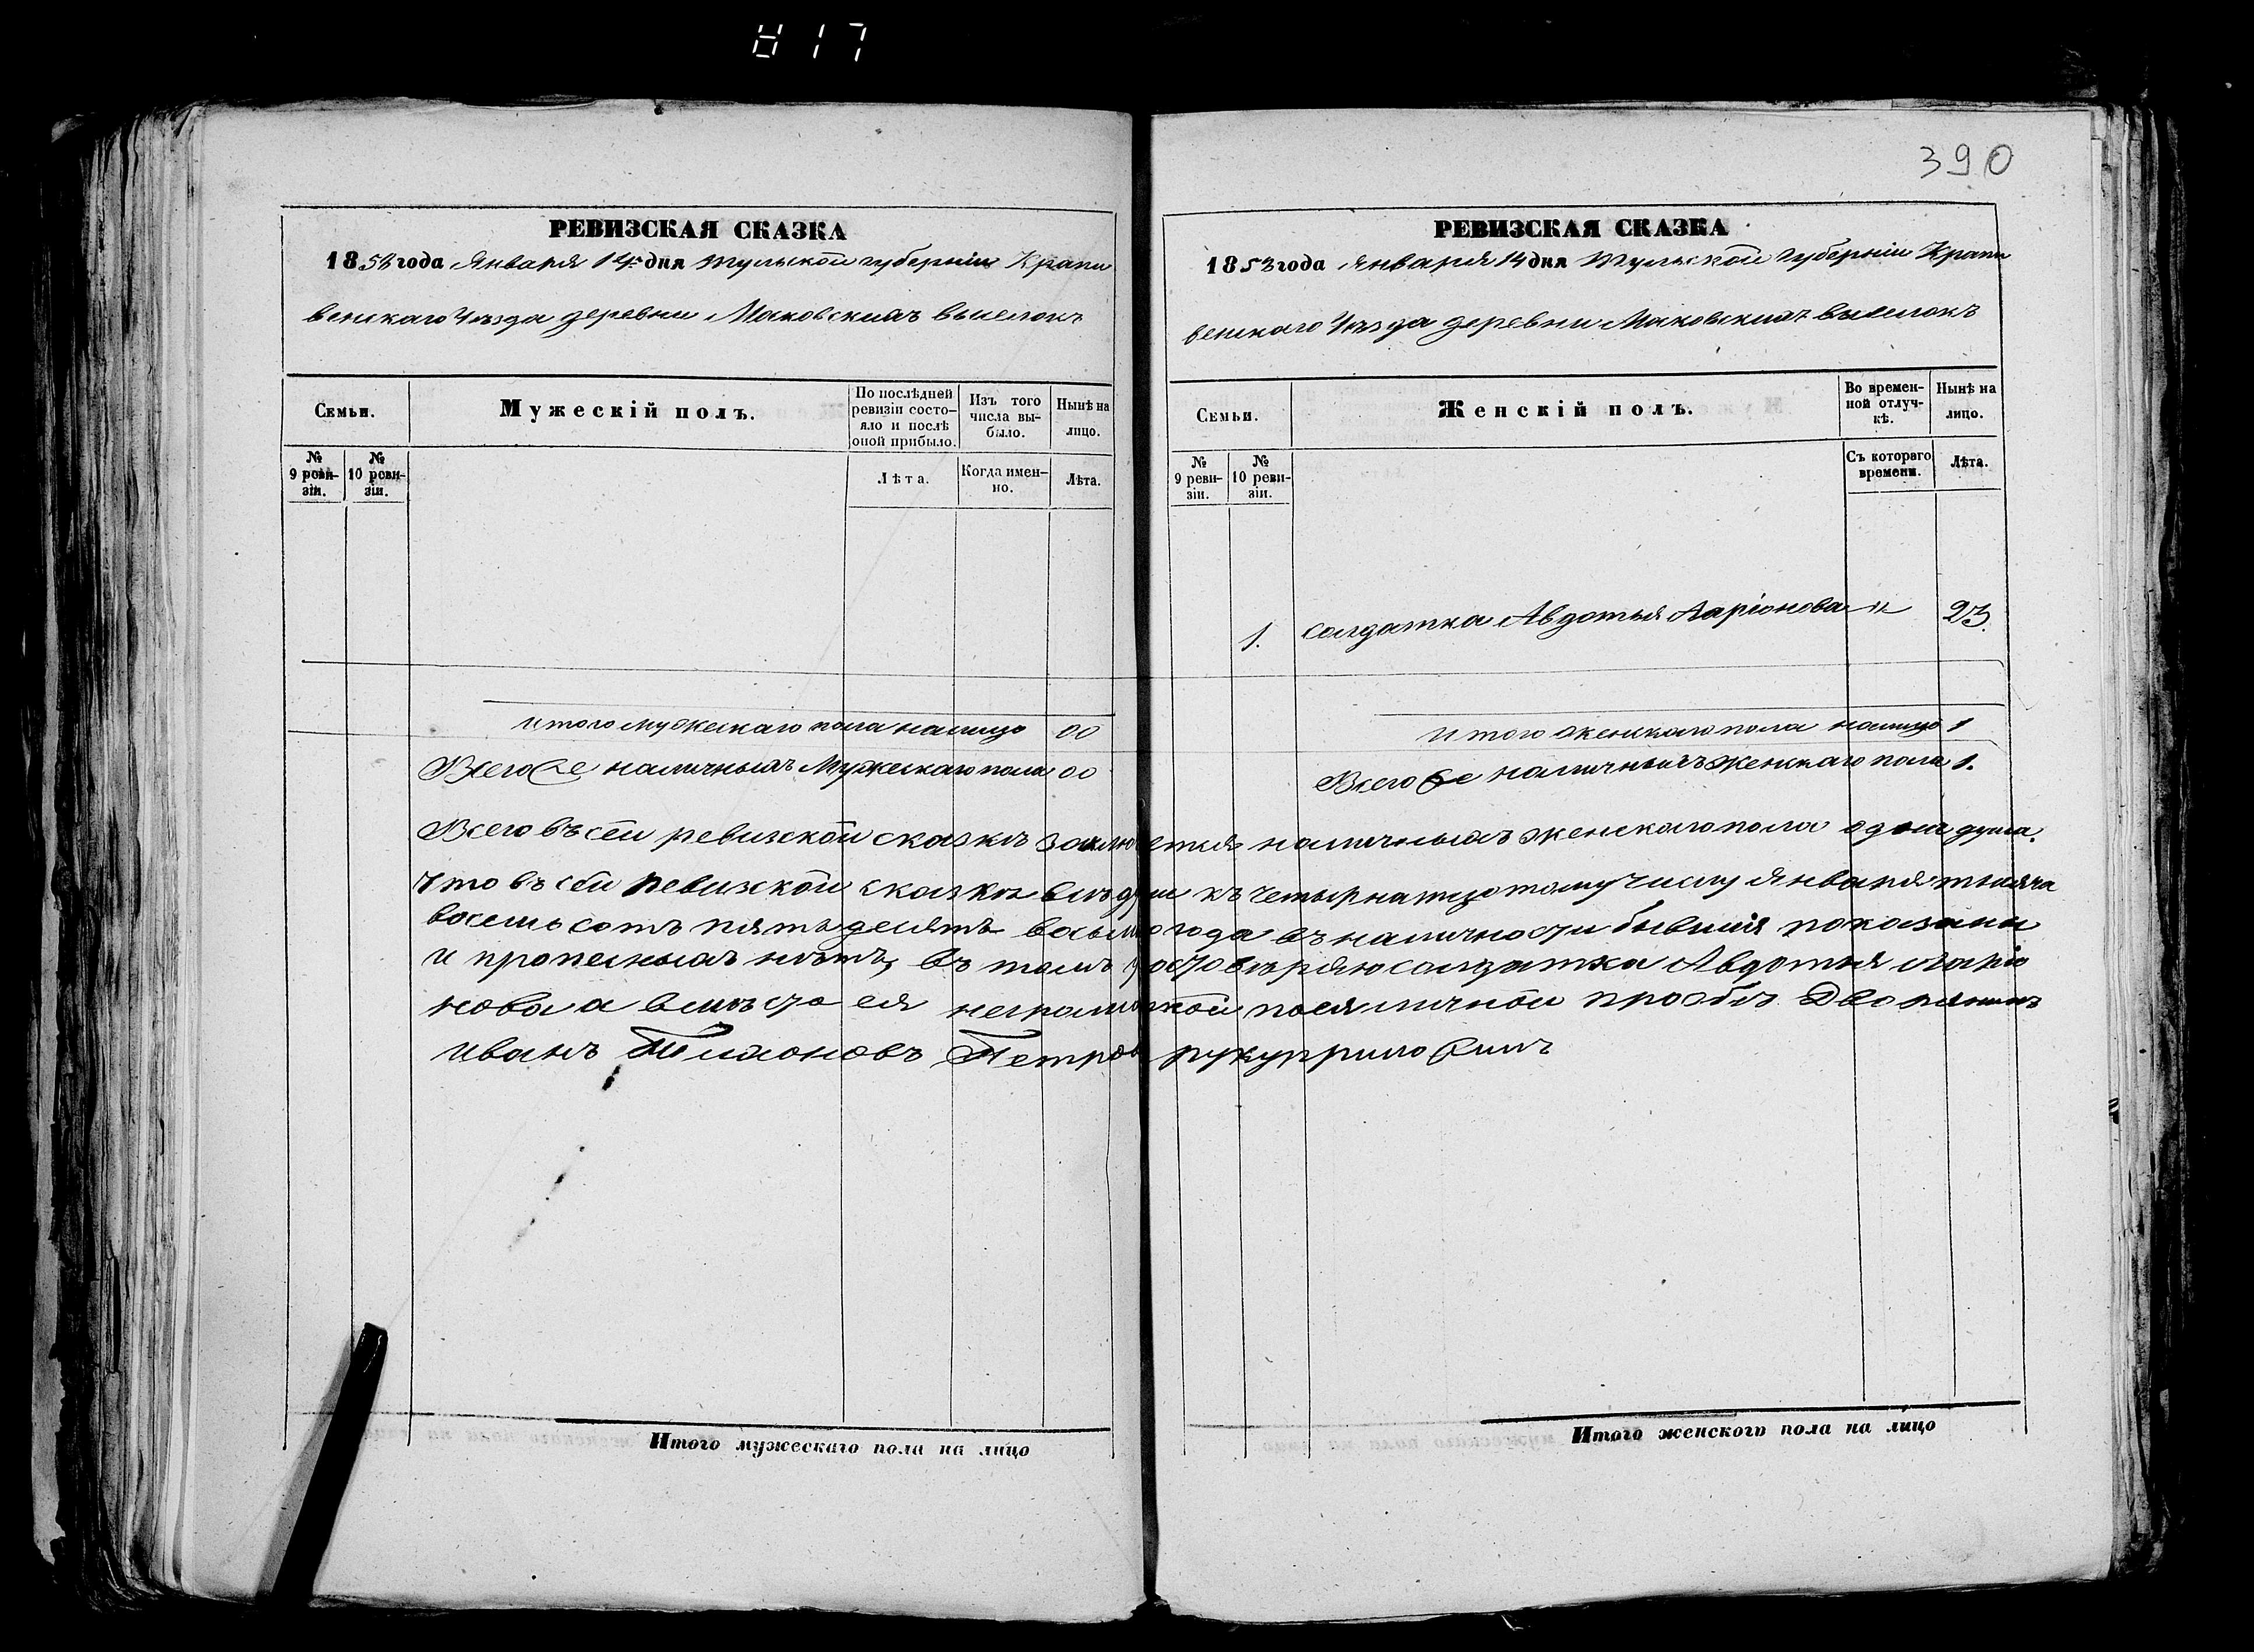 817
390
РЕВИЗСКАЯ СКАЗКА
1858 года Января 14 дня Тульской губерніи Крапи
венскаго Уѣзда деревни Маковскихъ выселокъ
Семьи.
Мужескій полъ.
По послѣдней ревизіи состояло и послѣ оной прибыло.
Изъ того числа выбыло.
Нынѣ на лицо.
№ 9 ревизіи.
№ 10 ревизіи.
Лѣта.
Когда именно.
Лѣта.
итого мужескаго пола налицо 00
Всего наличныхъ Мужескаго пола 00
РЕВИЗСКАЯ СКАЗКА
1858 года Января 14 дня Тульской Губерніи Крапи
венскаго Уѣзда деревни Маковскихъ выселокъ
Семьи.
Женскій полъ.
Во временной отлучкѣ.
Нынѣ на лицо.
№ 9 ревизіи.
№ 10 ревизіи.
Съ котораго времени.
Лѣта.
1. солдатка Авдотья Ларіонова " 23.
итого женскаго пола налицо 1
Всего наличныхъ женскаго пола 1.
Всего въ сей ревизской сказкѣ наличныхъ женскаго пола одна душа.
Что въ сей ревизской сказкѣ всѣ души къ четырнатцотому числу Января тысяча
восемьсотъ пятьдесятъ восьмого года въ наличности бывшія показаны
и пропесныхъ нѣтъ, въ томъ удостовѣряю солдатка Авдотья Ларіо
нова а вмѣсто ея неграмотной по ея личной просьбѣ Дворянинъ
иванъ Петровъ руку приложилъ
Итого мужескаго пола на лицо
Итого женскаго пола на лицо